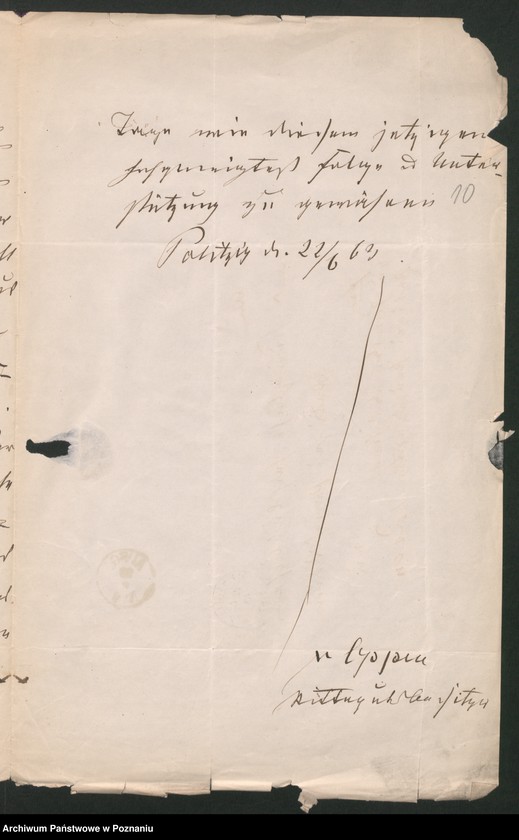 Lage mir diesem jetzigen
hochgeneigtest Folge u Unter-
stützung zu gewähren
10
Politzig d. 22/6 63
v
Rittergutsbesitzer
Archiwum Państwowe w Poznaniu